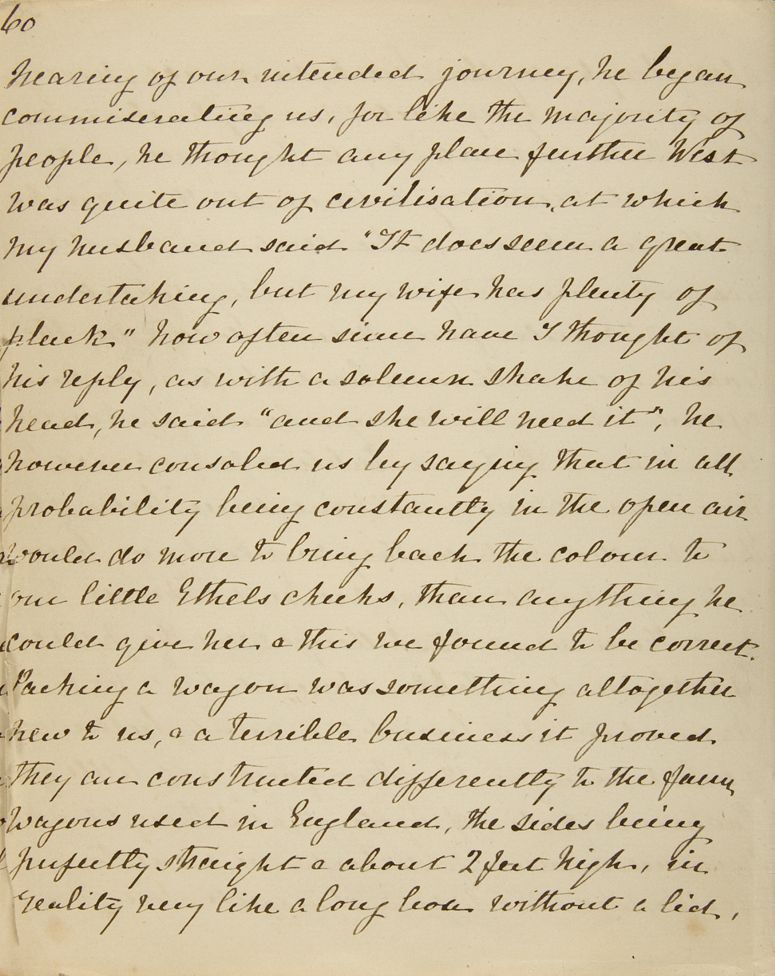 60
hearing of our intended journey, he began
commiserating us, for like the majority of
people, he thought any place further West
was quite out of civilisation, at which
my husband said "It does seem a great
undertaking, but my wife has plenty of
pluck" how often since have I thought of
his reply, as with a solemn shake of his
head, he said "and she will need it", he
however consoled us by saying that in all
probability being constantly in the open air
would do more to bring back the colour to
our little Ethels cheeks, than anything he
could give her & this we found to be correct.
Packing a wagon was something altogether
new to us, & a terrible business it proved
they are constructed differently to the farm
wagons used in England, the sides being
perfectly straight & about 2 feet high, in
reality very like a long box without a lid,